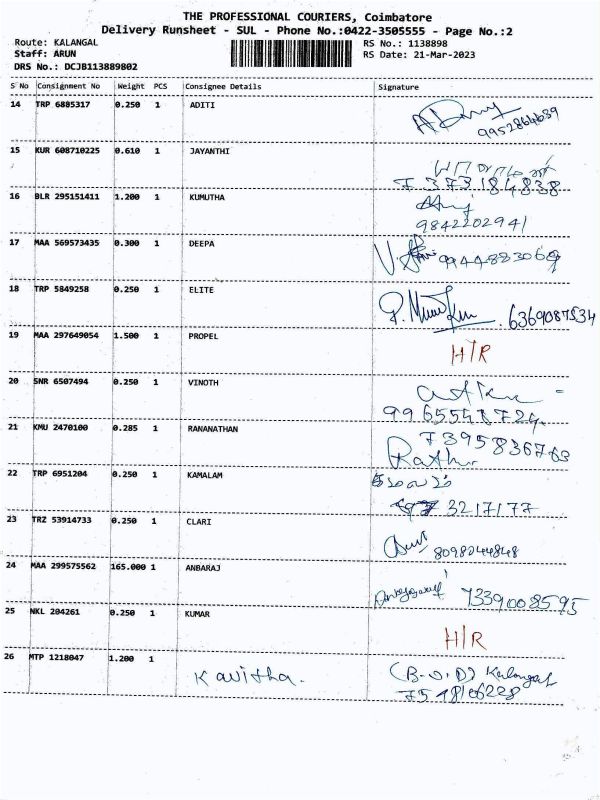 THE PROFESSIONAL COURIERS, Coimbatore
Delivery Runsheet - SUL - Phone No.:0422-3505555 - Page No.:2
Route: KALANGAL
RS No.: 1138898
Staff: ARUN
RS Date: 21-Mar-2023
DRS No.: DCJB113889802
S No Consignment No Weight PCS Consignee Details Signature
14 TRP 6885317 0.250 1 ADITI
9952864639
15 KUR 608710225 0.610 1 JAYANTHI
7373184838
16 BLR 295151411 1.200 1 KUMUTHA
9842202941
17 MAA 569573435 0.300 1 DEEPA
9944823069
18 TRP 5849258 0.250 1 ELITE
6369087534
19 MAA 297649054 1.500 1 PROPEL
H/R
20 SNR 6507494 0.250 1 VINOTH
21 KMU 2470100 0.285 1 RANANATHAN
7395836763
22 TRP 6951204 0.250 1 KAMALAM
3217177
23 TRZ 53914733 0.250 1 CLARI
8098244848
24 MAA 299575562 165.000 1 ANBARAJ
7339008595
25 NKL 204261 0.250 1 KUMAR
H/R
26 MTP 1218047 1.200 1 Kavitha. (B.O.D) Kalangal